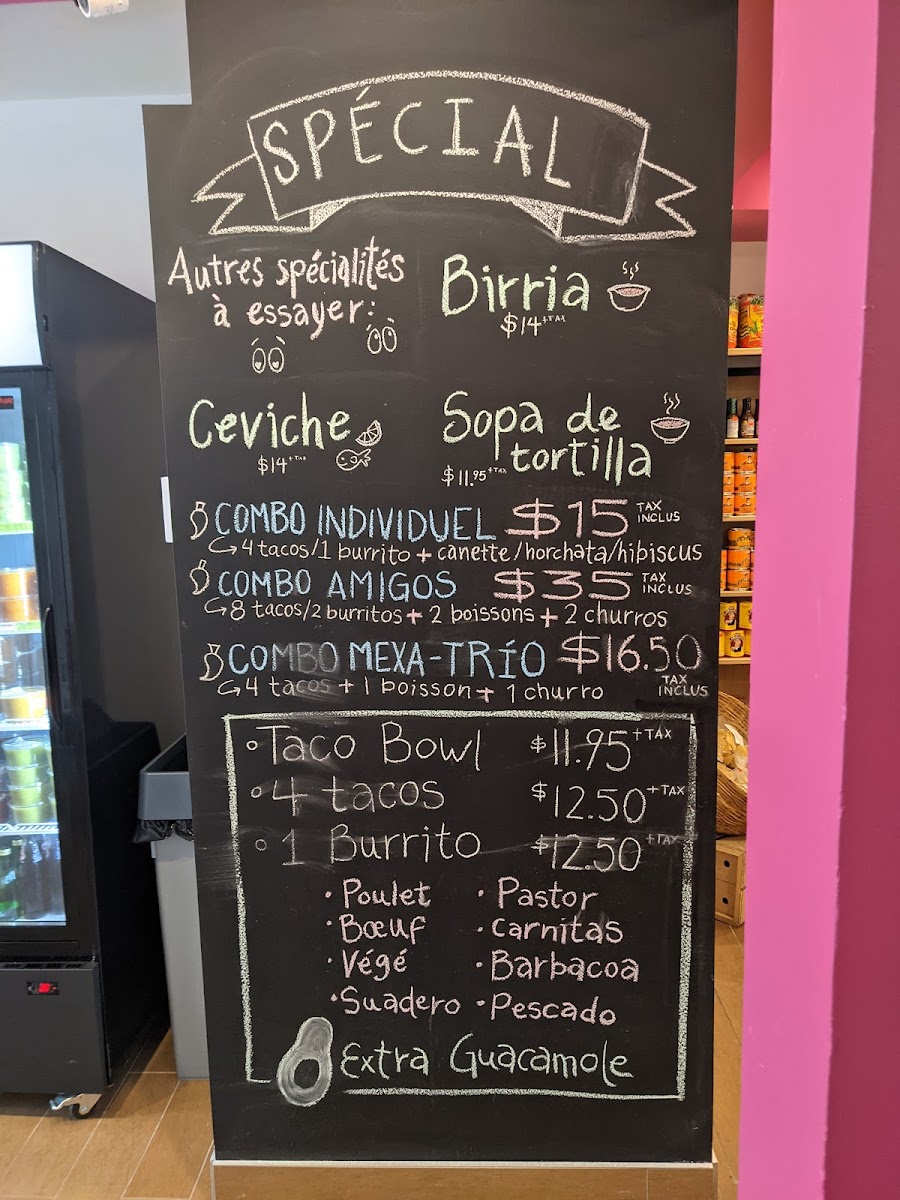 SPÉCIAL
Autres spécialités
à essayer:
Birria
$14 +TAX
Ceviche
$14 +TAX
Sopa de
tortilla
$11.95 +TAX
COMBO INDIVIDUEL $15 TAX INCLUS
4 tacos/1 burrito + canette/horchata/hibiscus
COMBO AMIGOS $35 TAX INCLUS
8 tacos/2 burritos + 2 boissons + 2 churros
COMBO MEXA-TRÍO $16.50
4 tacos + 1 boisson + 1 churro TAX INCLUS
Taco Bowl $11.95 +TAX
4 tacos $12.50 +TAX
1 Burrito $12.50 +TAX
· Poulet · Pastor
· Bœuf · Carnitas
· Végé · Barbacoa
· Suadero · Pescado
Extra Guacamole